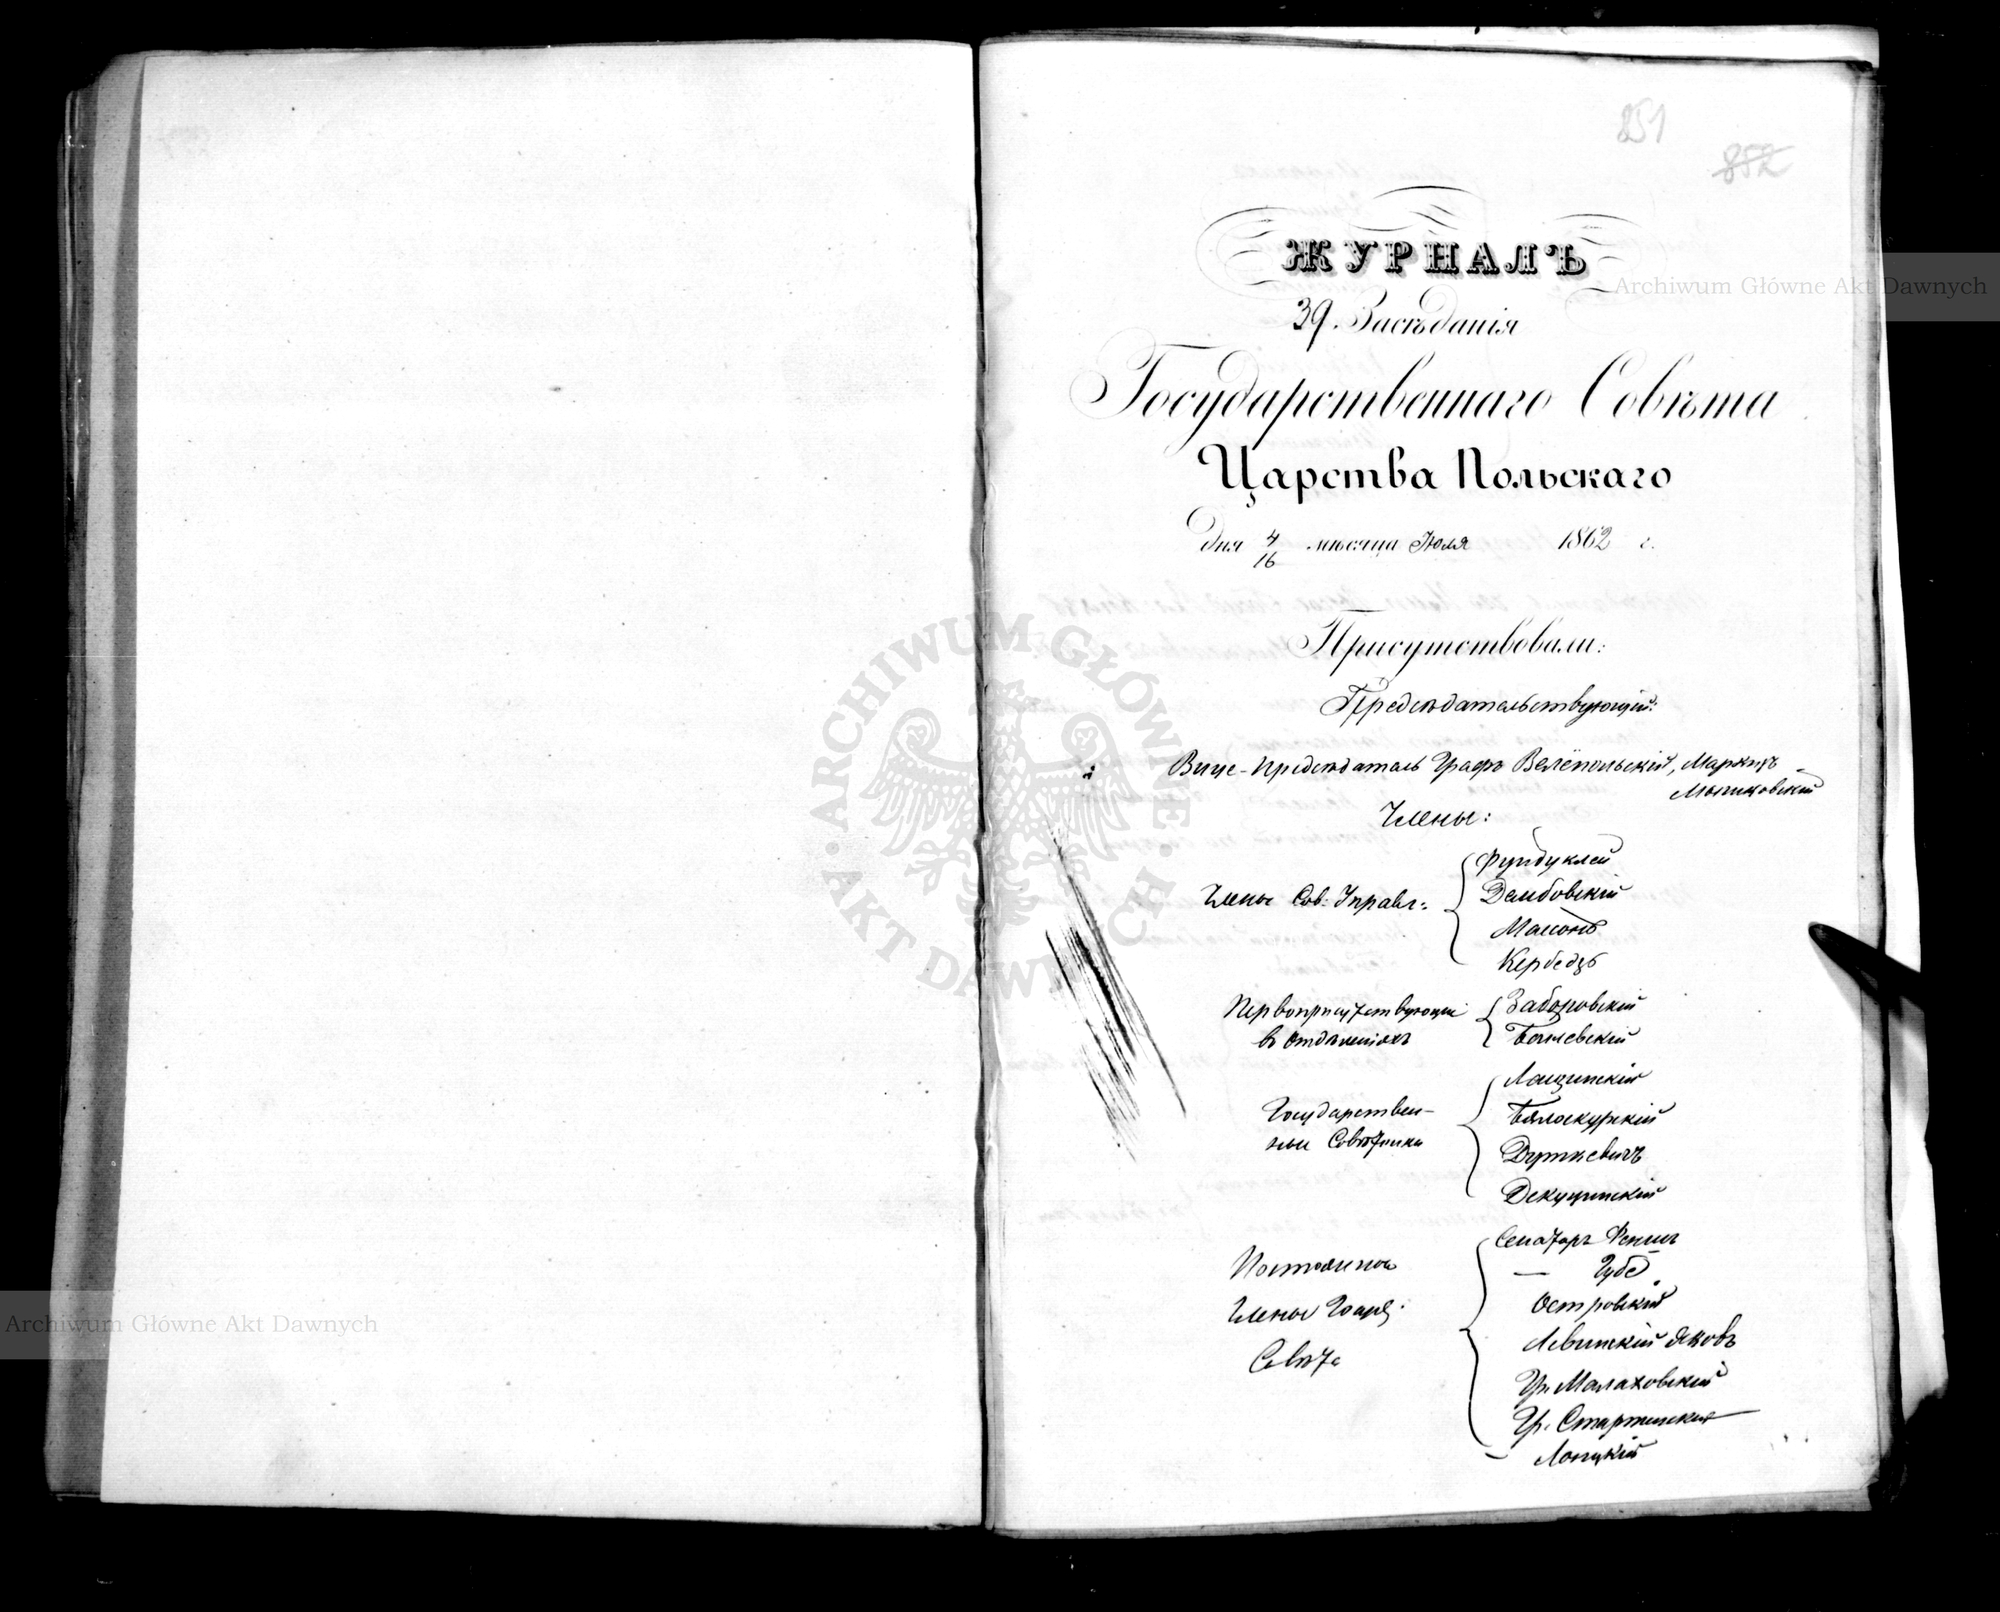 851
852
ЖУРНАЛЪ
39. Засѣданія
Государственнаго Совѣта
Царства Польскаго
дня 4/16 мѣсяца Іюля 1862 г.
Присутствовали:
Предсѣдательствующій:
Вице-Предсѣдатель Графъ Велёпольскій, Маркизъ
Мышковскій
Члены:
Члены Сов: Управл:
Фундуклей
Дембовскій
Массонъ
Кербедзъ
Первоприсутствующіе
въ Отдѣленіяхъ
Заборовскій
Государствен-
ные Совѣтники
Лащинскій
Бялоскурскій
Дуткевичъ
Декуцинскій
Постоянные
Члены Госуд.
Совѣта
Сенаторъ Феншъ
— Губе
Островскій
Левинскій Яковъ
Гр. Малаховскій
Гр. Старженскій
Archiwum Główne Akt Dawnych
Archiwum Główne Akt Dawnych
ARCHIWUM GŁÓWNE AKT DAWNYCH